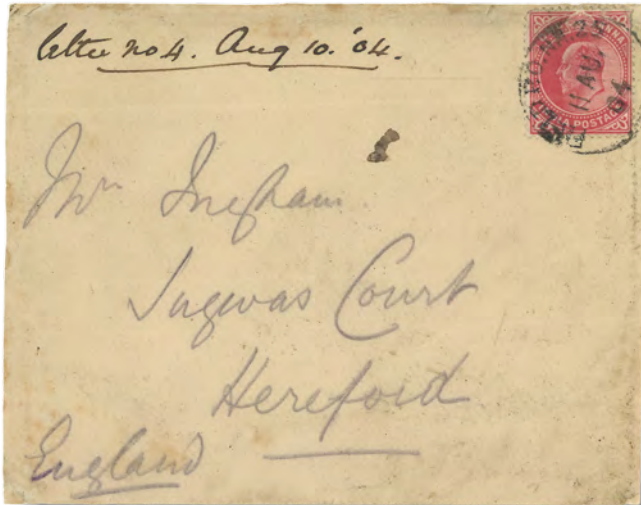 letter no 4. Aug 10. '04.
ANNA
INDIA POSTAGE
11 AU
04
Mrs Ingham
Sugwas Court
Hereford
England